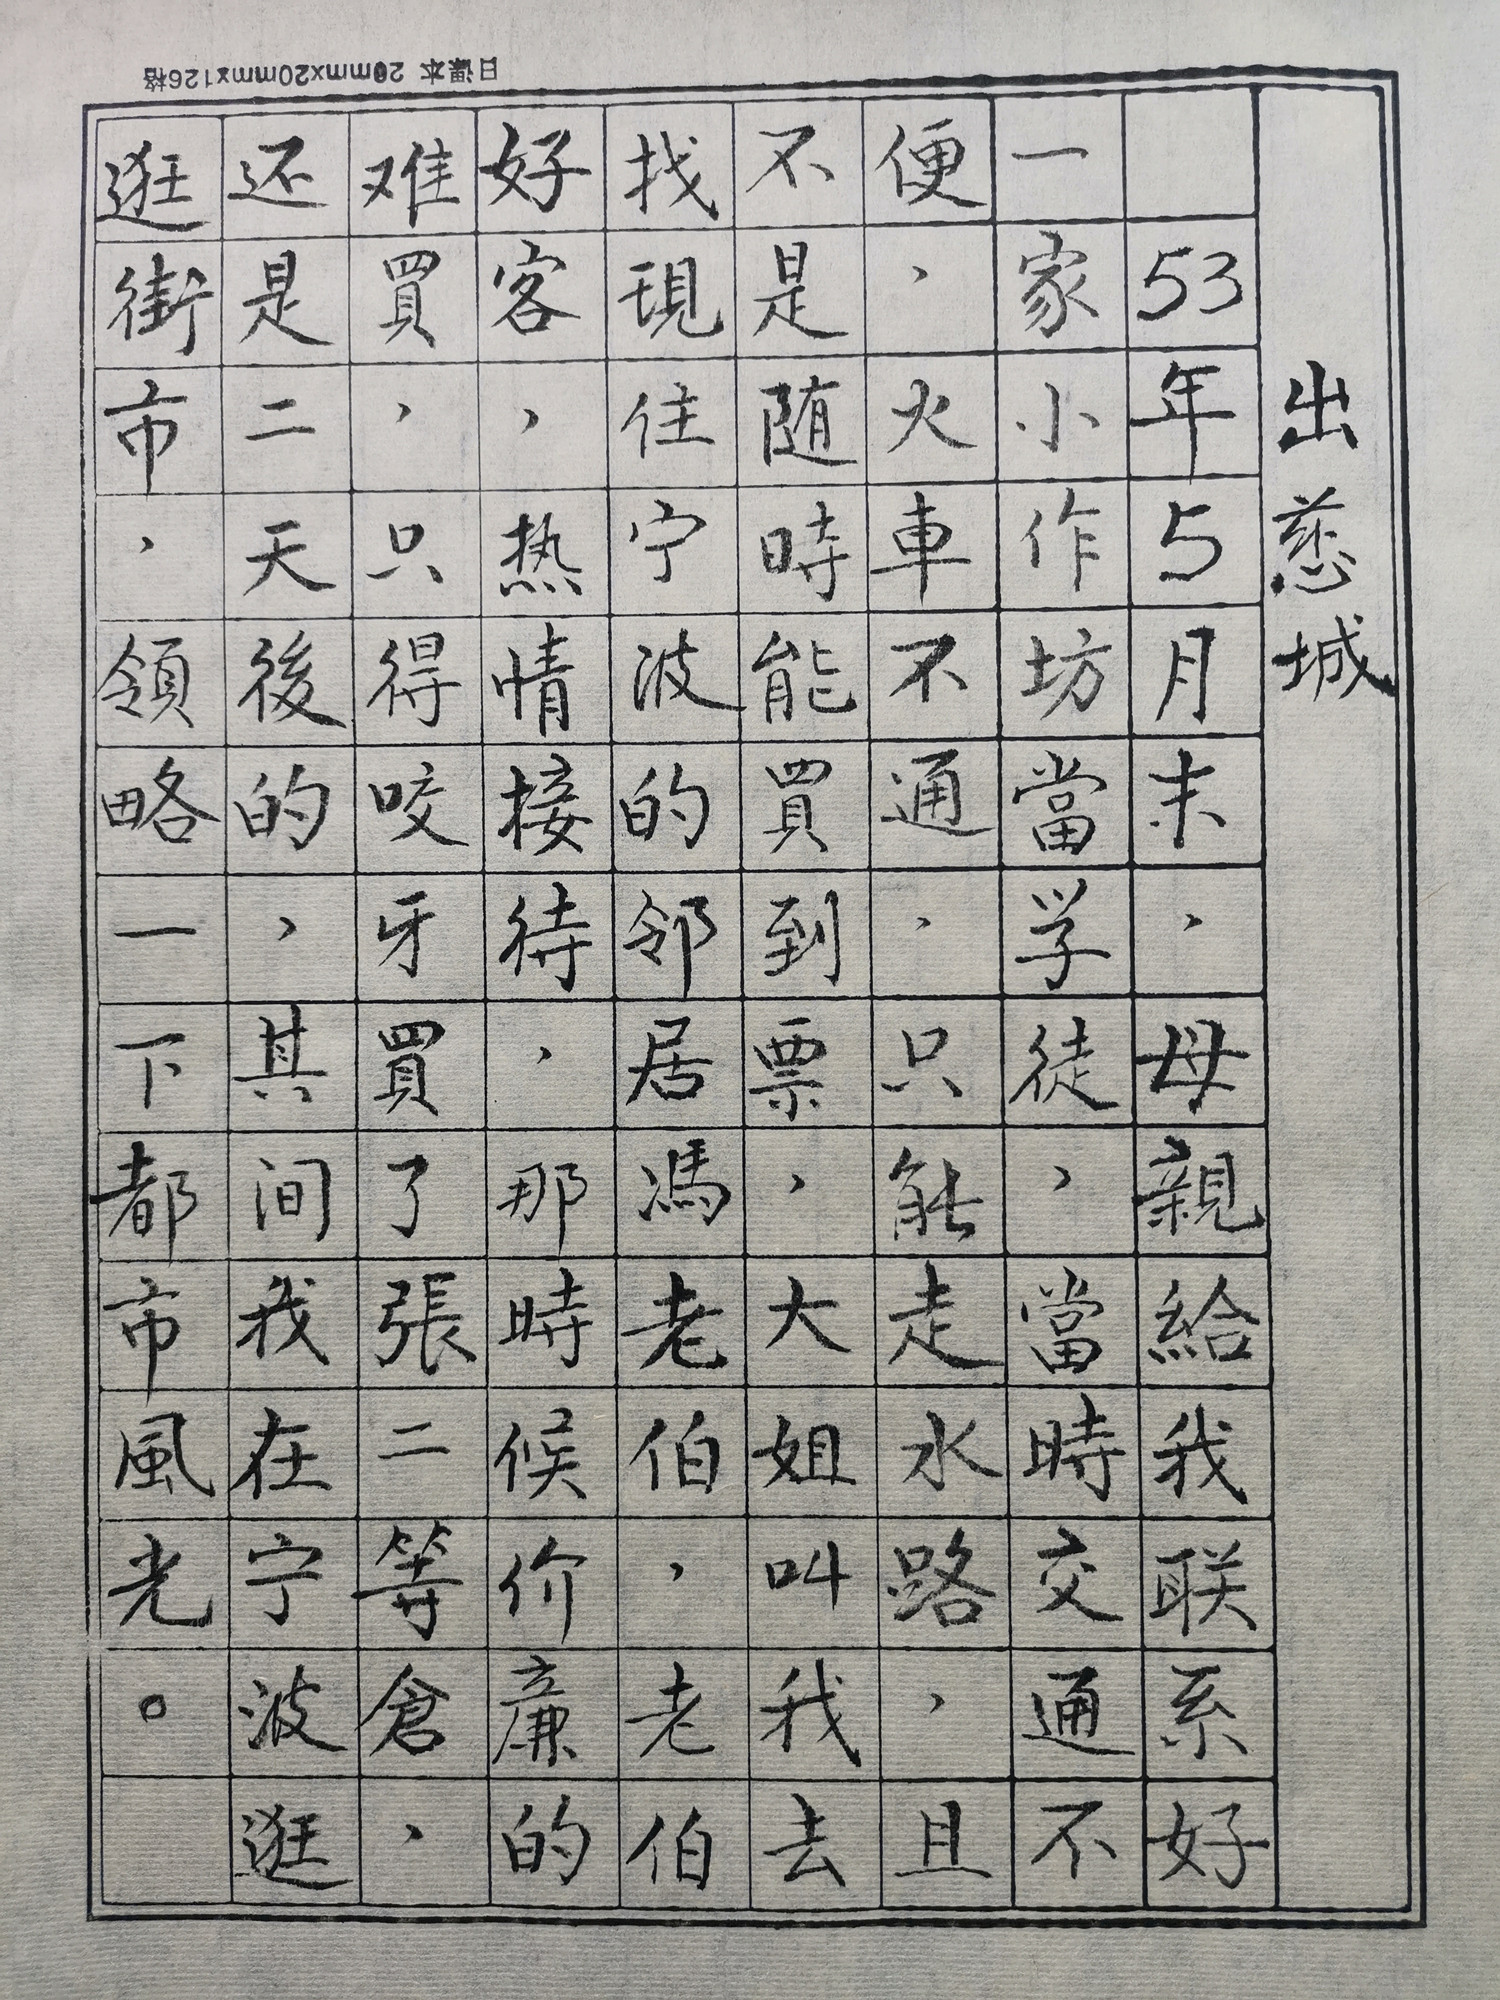 日课本 20mmx20mmx126格
出慈城
53年5月末，母親給我联系好
一家小作坊當学徒，當時交通不
便，火車不通，只能走水路，且
不是随時能買到票，大姐叫我去
找現住宁波的邻居馮老伯，老伯
好客，热情接待，那時候价廉的
难買，只得咬牙買了張二等倉，
还是二天後的，其间我在宁波逛
逛街市，領略一下都市風光。